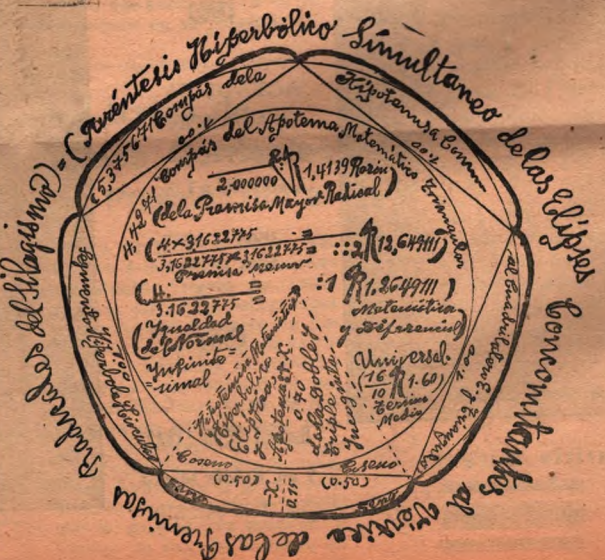 (Paréntesis Hiperbólico Simultaneo de las Elipses Concomitantes al Vórtice de las Premisas Radicales del Silogismo) =
(5,375671 Compás de la
00.1
Hipotenusa Comun
00.1
4.4271 Compás del Apotema Matemático Triangular
2,000000
1,4139 Razón
(de la Premisa Mayor Radical)
(4 × 31622775 =
3,1622775 × 31622775 =
::2 R 12,649111)
Premisa Menor
(4. =
3.1622775
:1 R 1.2649111)
(Ygualdad
de lo Normal
Ynfinite=
simal
Matemática
y Diferencial)
Universal.
(16
10
R 1.60)
Termino
Medio
Hipotenusa Matemática
Hiperbolica
Apotema X.
0.70
de la Doble y
Triple
Coseno
Coseno
(0.50)
(0.50)
-X.
0.15